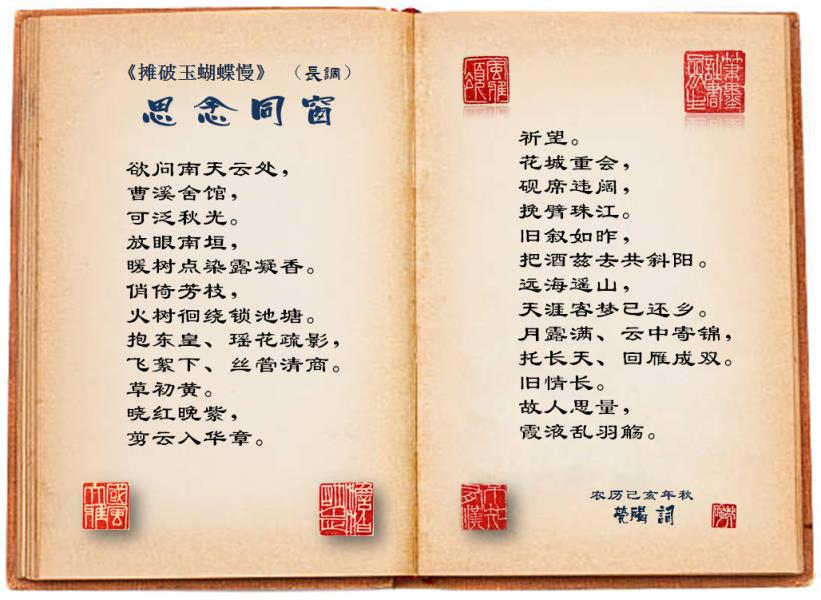 《摊破玉蝴蝶慢》 （長調）
思念同窗
欲问南天云处，
曹溪舍馆，
可泛秋光。
放眼南垣，
暖树点染露凝香。
俏倚芳枝，
火树徊绕锁池塘。
抱东皇、瑶花疏影，
飞絮下、丝菅清商。
草初黄。
晓红晚紫，
剪云入华章。
祈望。
花城重会，
砚席违阔，
挽臂珠江。
旧叙如昨，
把酒兹去共斜阳。
远海遥山，
天涯客梦已还乡。
月露满、云中寄锦，
托长天、回雁成双。
旧情长。
故人思量，
霞液乱羽觞。
农历己亥年秋
词